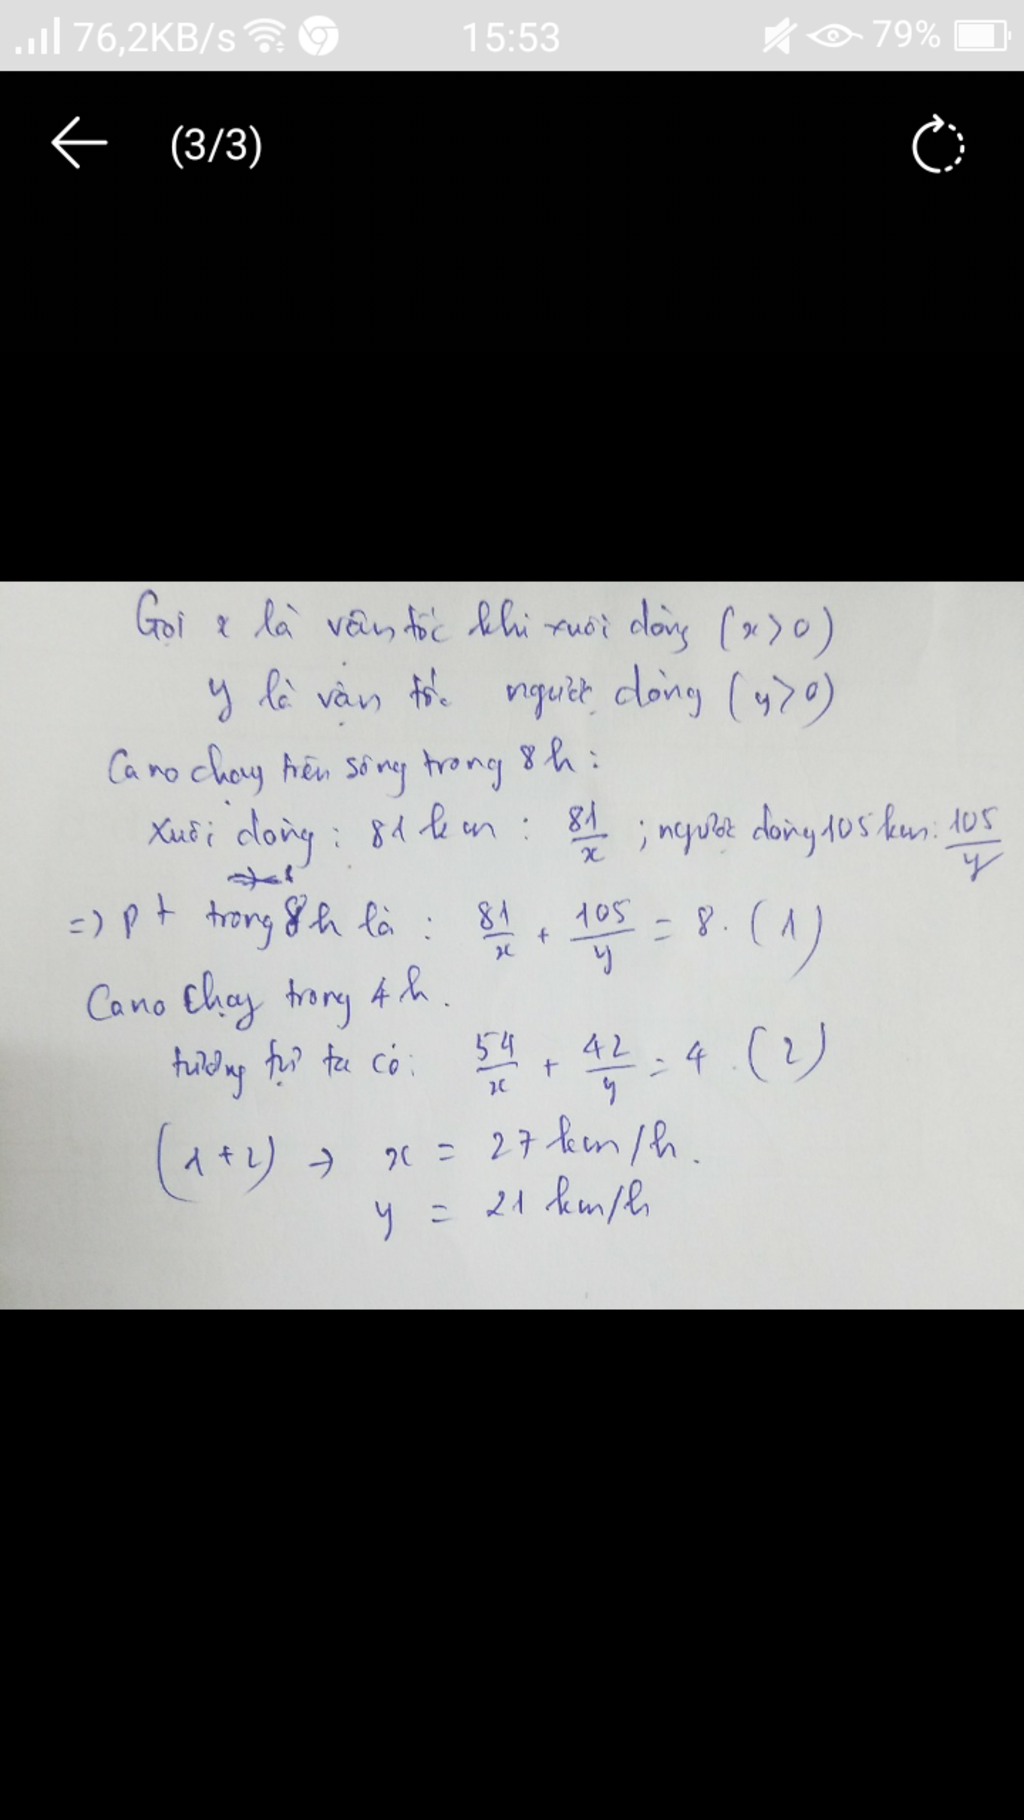 76,2KB/s 15:53 79%
(3/3)
Gọi x là vân tốc khi xuôi dòng (x>0)
y là vận tốc ngược dòng (y>0)
Cano chạy trên sông trong 8h:
Xuôi dòng: 81km: 81/x ; ngược dòng 105km: 105/y
=> pt trong 8h là: 81/x + 105/y = 8. (1)
Cano chạy trong 4h.
tương tự ta có: 54/x + 42/y = 4. (2)
(1+2) → x = 27 km/h.
y = 21 km/h